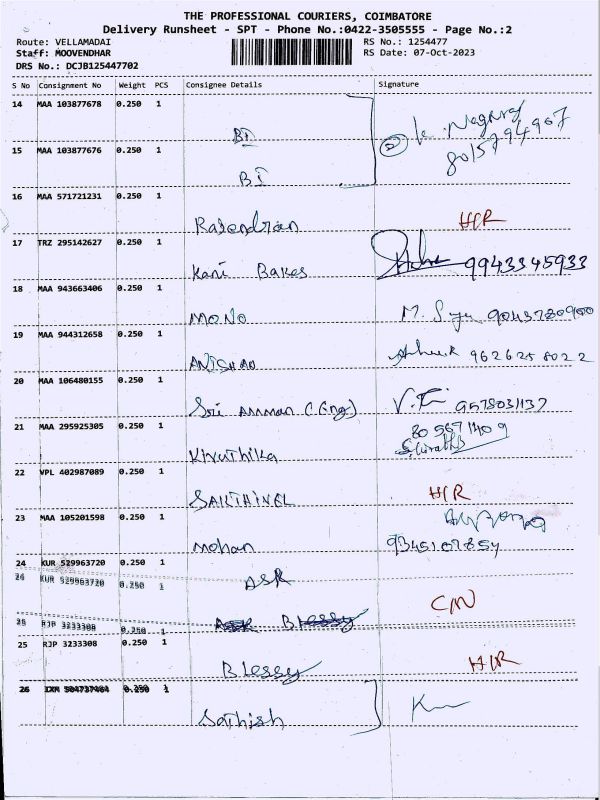 THE PROFESSIONAL COURIERS, COIMBATORE
Delivery Runsheet - SPT - Phone No.:0422-3505555 - Page No.:2
Route: VELLAMADAI RS No.: 1254477
Staff: MOOVENDHAR RS Date: 07-Oct-2023
DRS No.: DCJB125447702
S No Consignment No Weight PCS Consignee Details Signature
14 MAA 103877678 0.250 1
BI
15 MAA 103877676 0.250 1
BI
16 MAA 571721231 0.250 1
Rajendran H/R
17 TRZ 295142627 0.250 1
Kani Bakes 9943345933
18 MAA 943663406 0.250 1
MONO M.
19 MAA 944312658 0.250 1
9626258022
20 MAA 106480155 0.250 1
Sri Amman (Eng) 9578031137
21 MAA 295925305 0.250 1 8056671409
Kiruthika
22 VPL 402987089 0.250 1
SAKTHIVEL H/R
23 MAA 105201598 0.250 1
Mohan
24 KUR 529963720 0.250 1
24 KUR 529963720 0.250 1 ASR
25 RJP 3233308 0.250 1 Blessy
25 RJP 3233308 0.250 1
Blessy H/R
26 IXM 504737464 0.250 1
Sathish